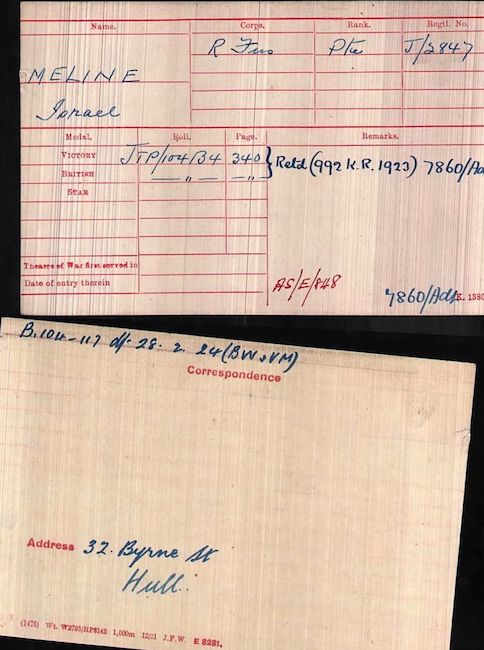 Name. Corps. Rank. Regtl. No.
R Fus Pte J/2847
MELINE
Israel
Medal. Roll. Page. Remarks.
VICTORY JTP/104/B4 340 } Retd (992 K.R. 1923) 7860/Adt
BRITISH —„— —„—
STAR
Theatre of War first served in
Date of entry therein
AS/E/848
7860/Adt K. 1380
B. 104-117 df 28. 2. 24 (BW & VM)
Correspondence
Address 32. Byrne St
Hull.
(1475) Wt. W2793/RP8142 1,000m 12/21 J.F.W. E 8281.